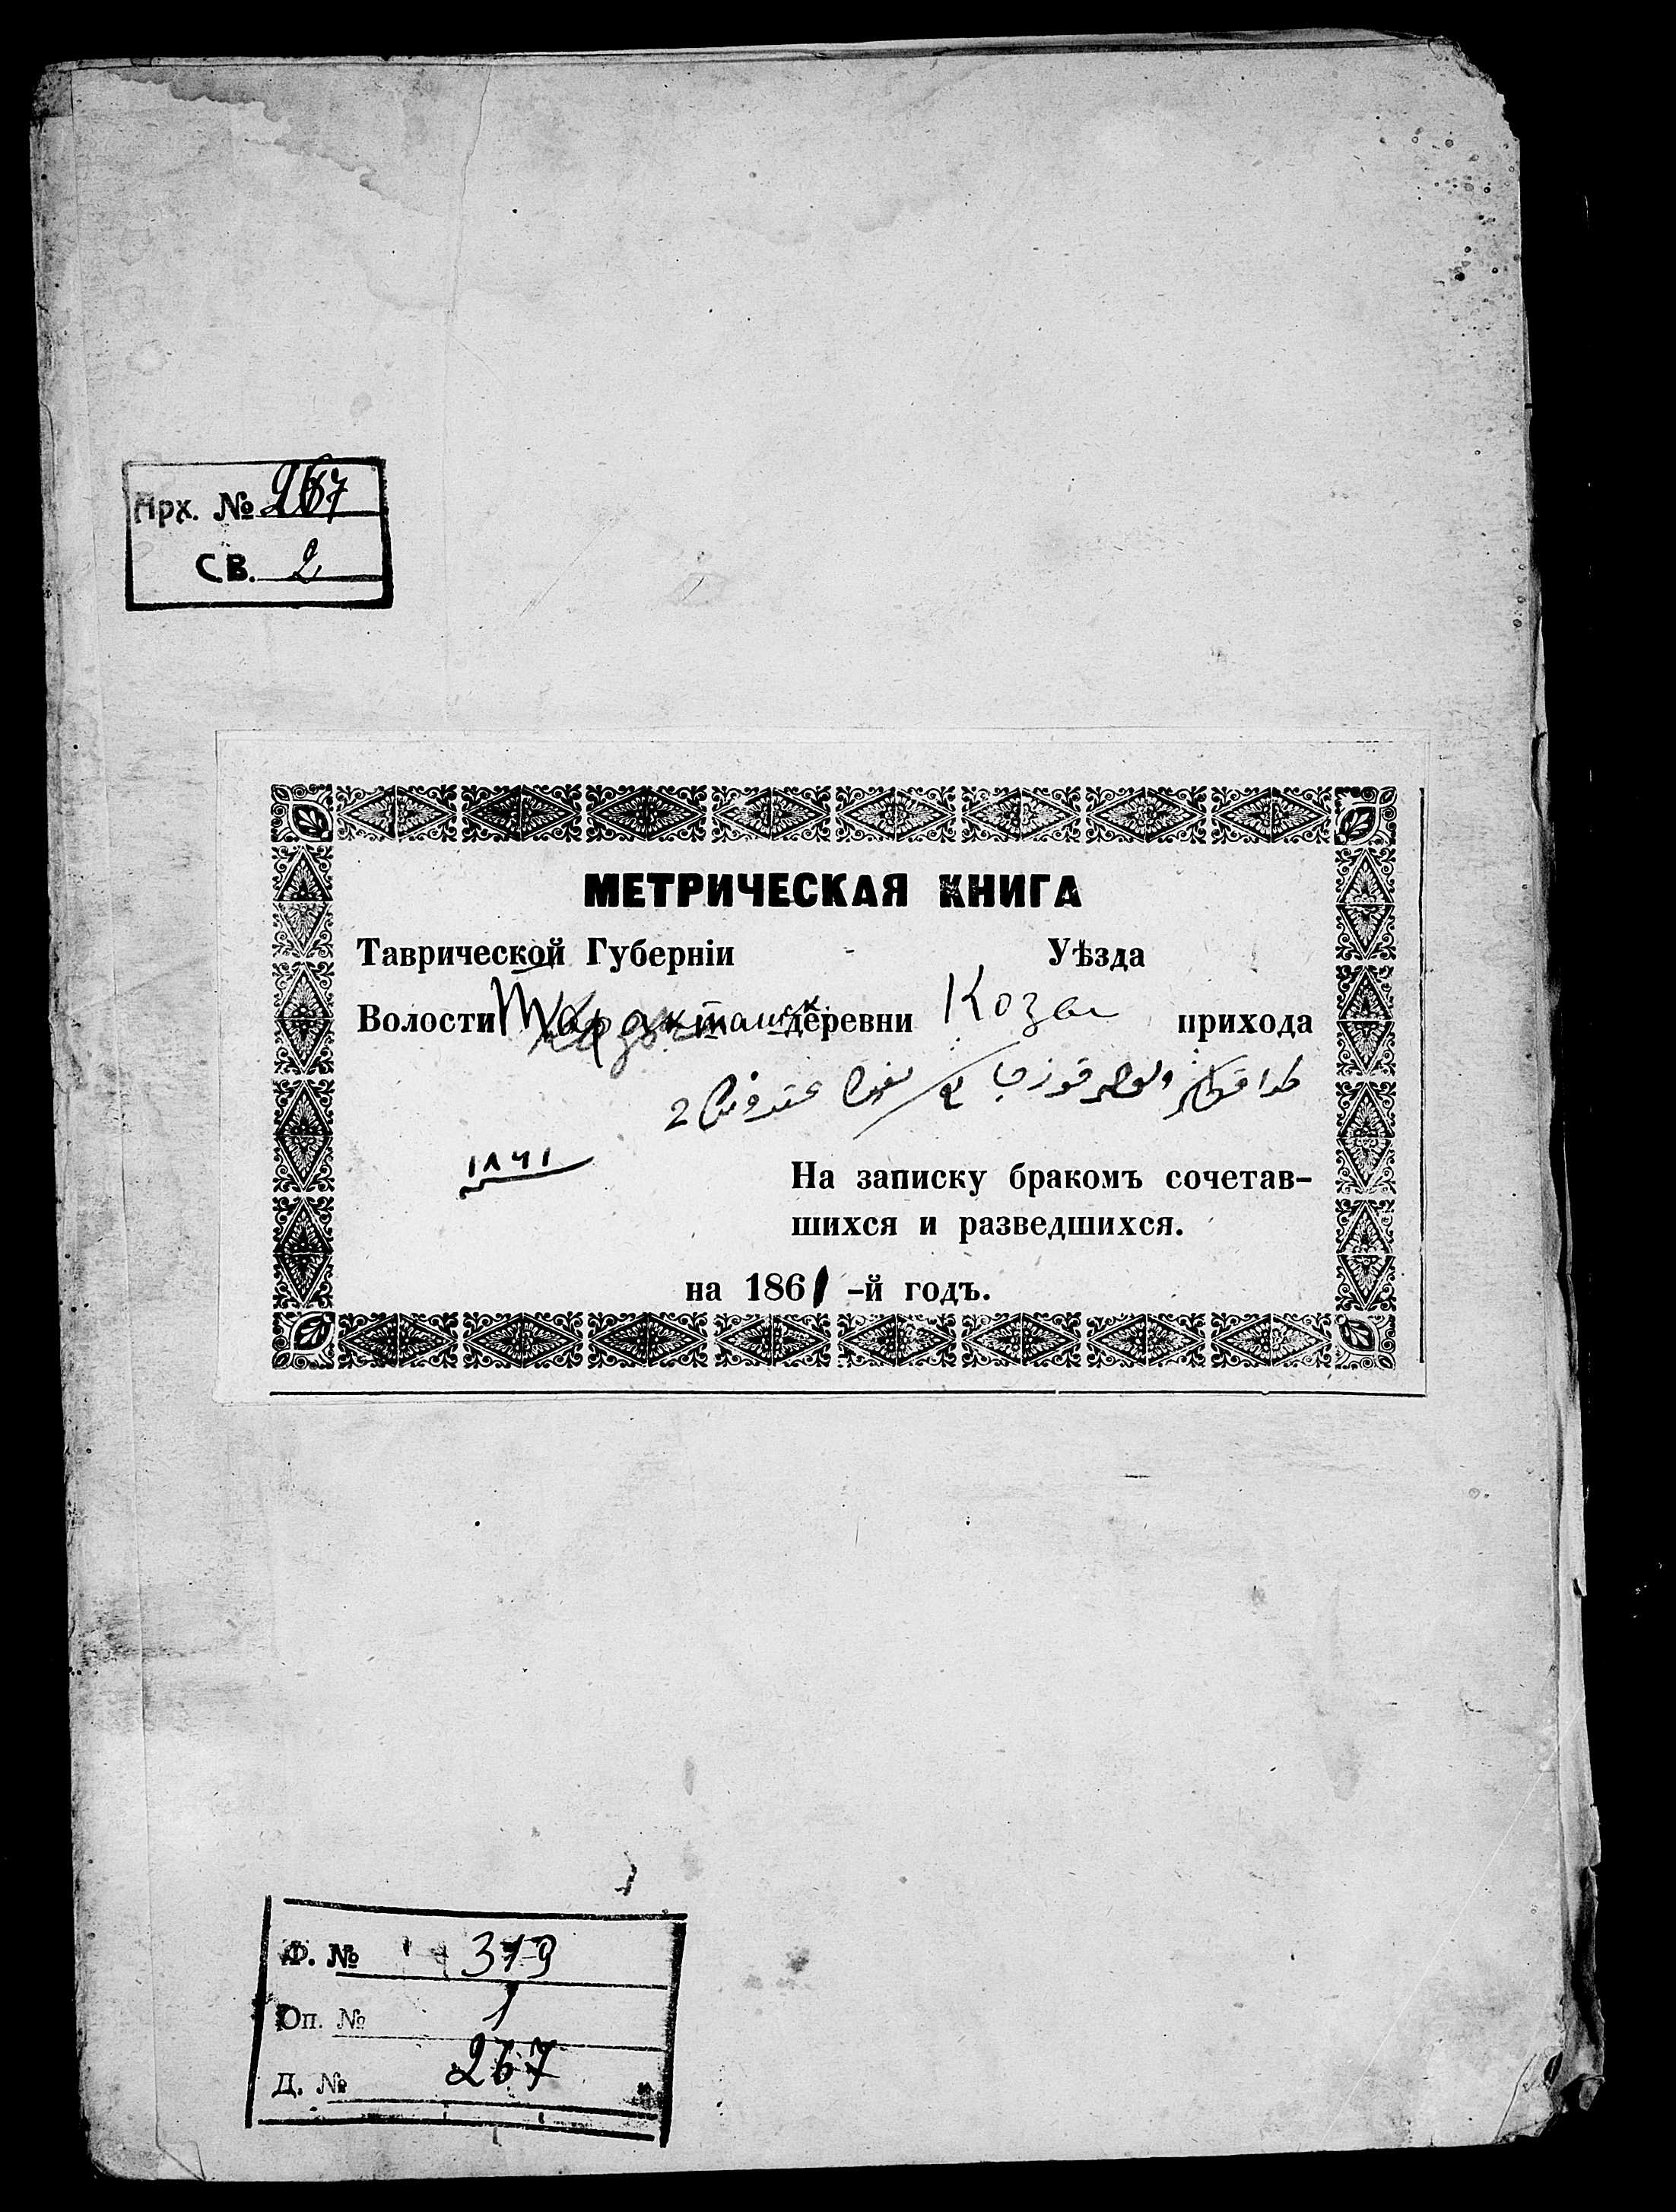 Арх. № 267
св. 2
МЕТРИЧЕСКАЯ КНИГА
Таврической Губерніи Уѣзда
Волости деревни Козы прихода
١٨٦١
На записку бракомъ сочетав-
шихся и разведшихся.
на 1861-й годъ.
Ф. № 319
Оп. № 1
Д. № 267